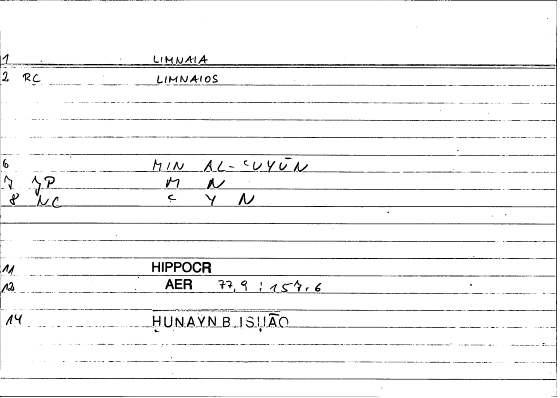 1 LIMNAIA
2 RC LIMNAIOS
6 MIN AL-ʿUYŪN
7 JP M N
8 NC ʿ Y N
11 HIPPOCR
12 AER 77,9 ; 157,6
14 ḤUNAYN B. ISḤĀQ